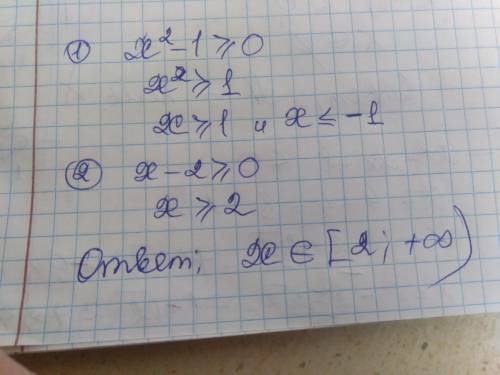 ① x² - 1 ⩾ 0
x² ⩾ 1
x ⩾ 1 и x ≤ -1
② x - 2 ⩾ 0
x ⩾ 2
Ответ; x ∈ [2; +∞)